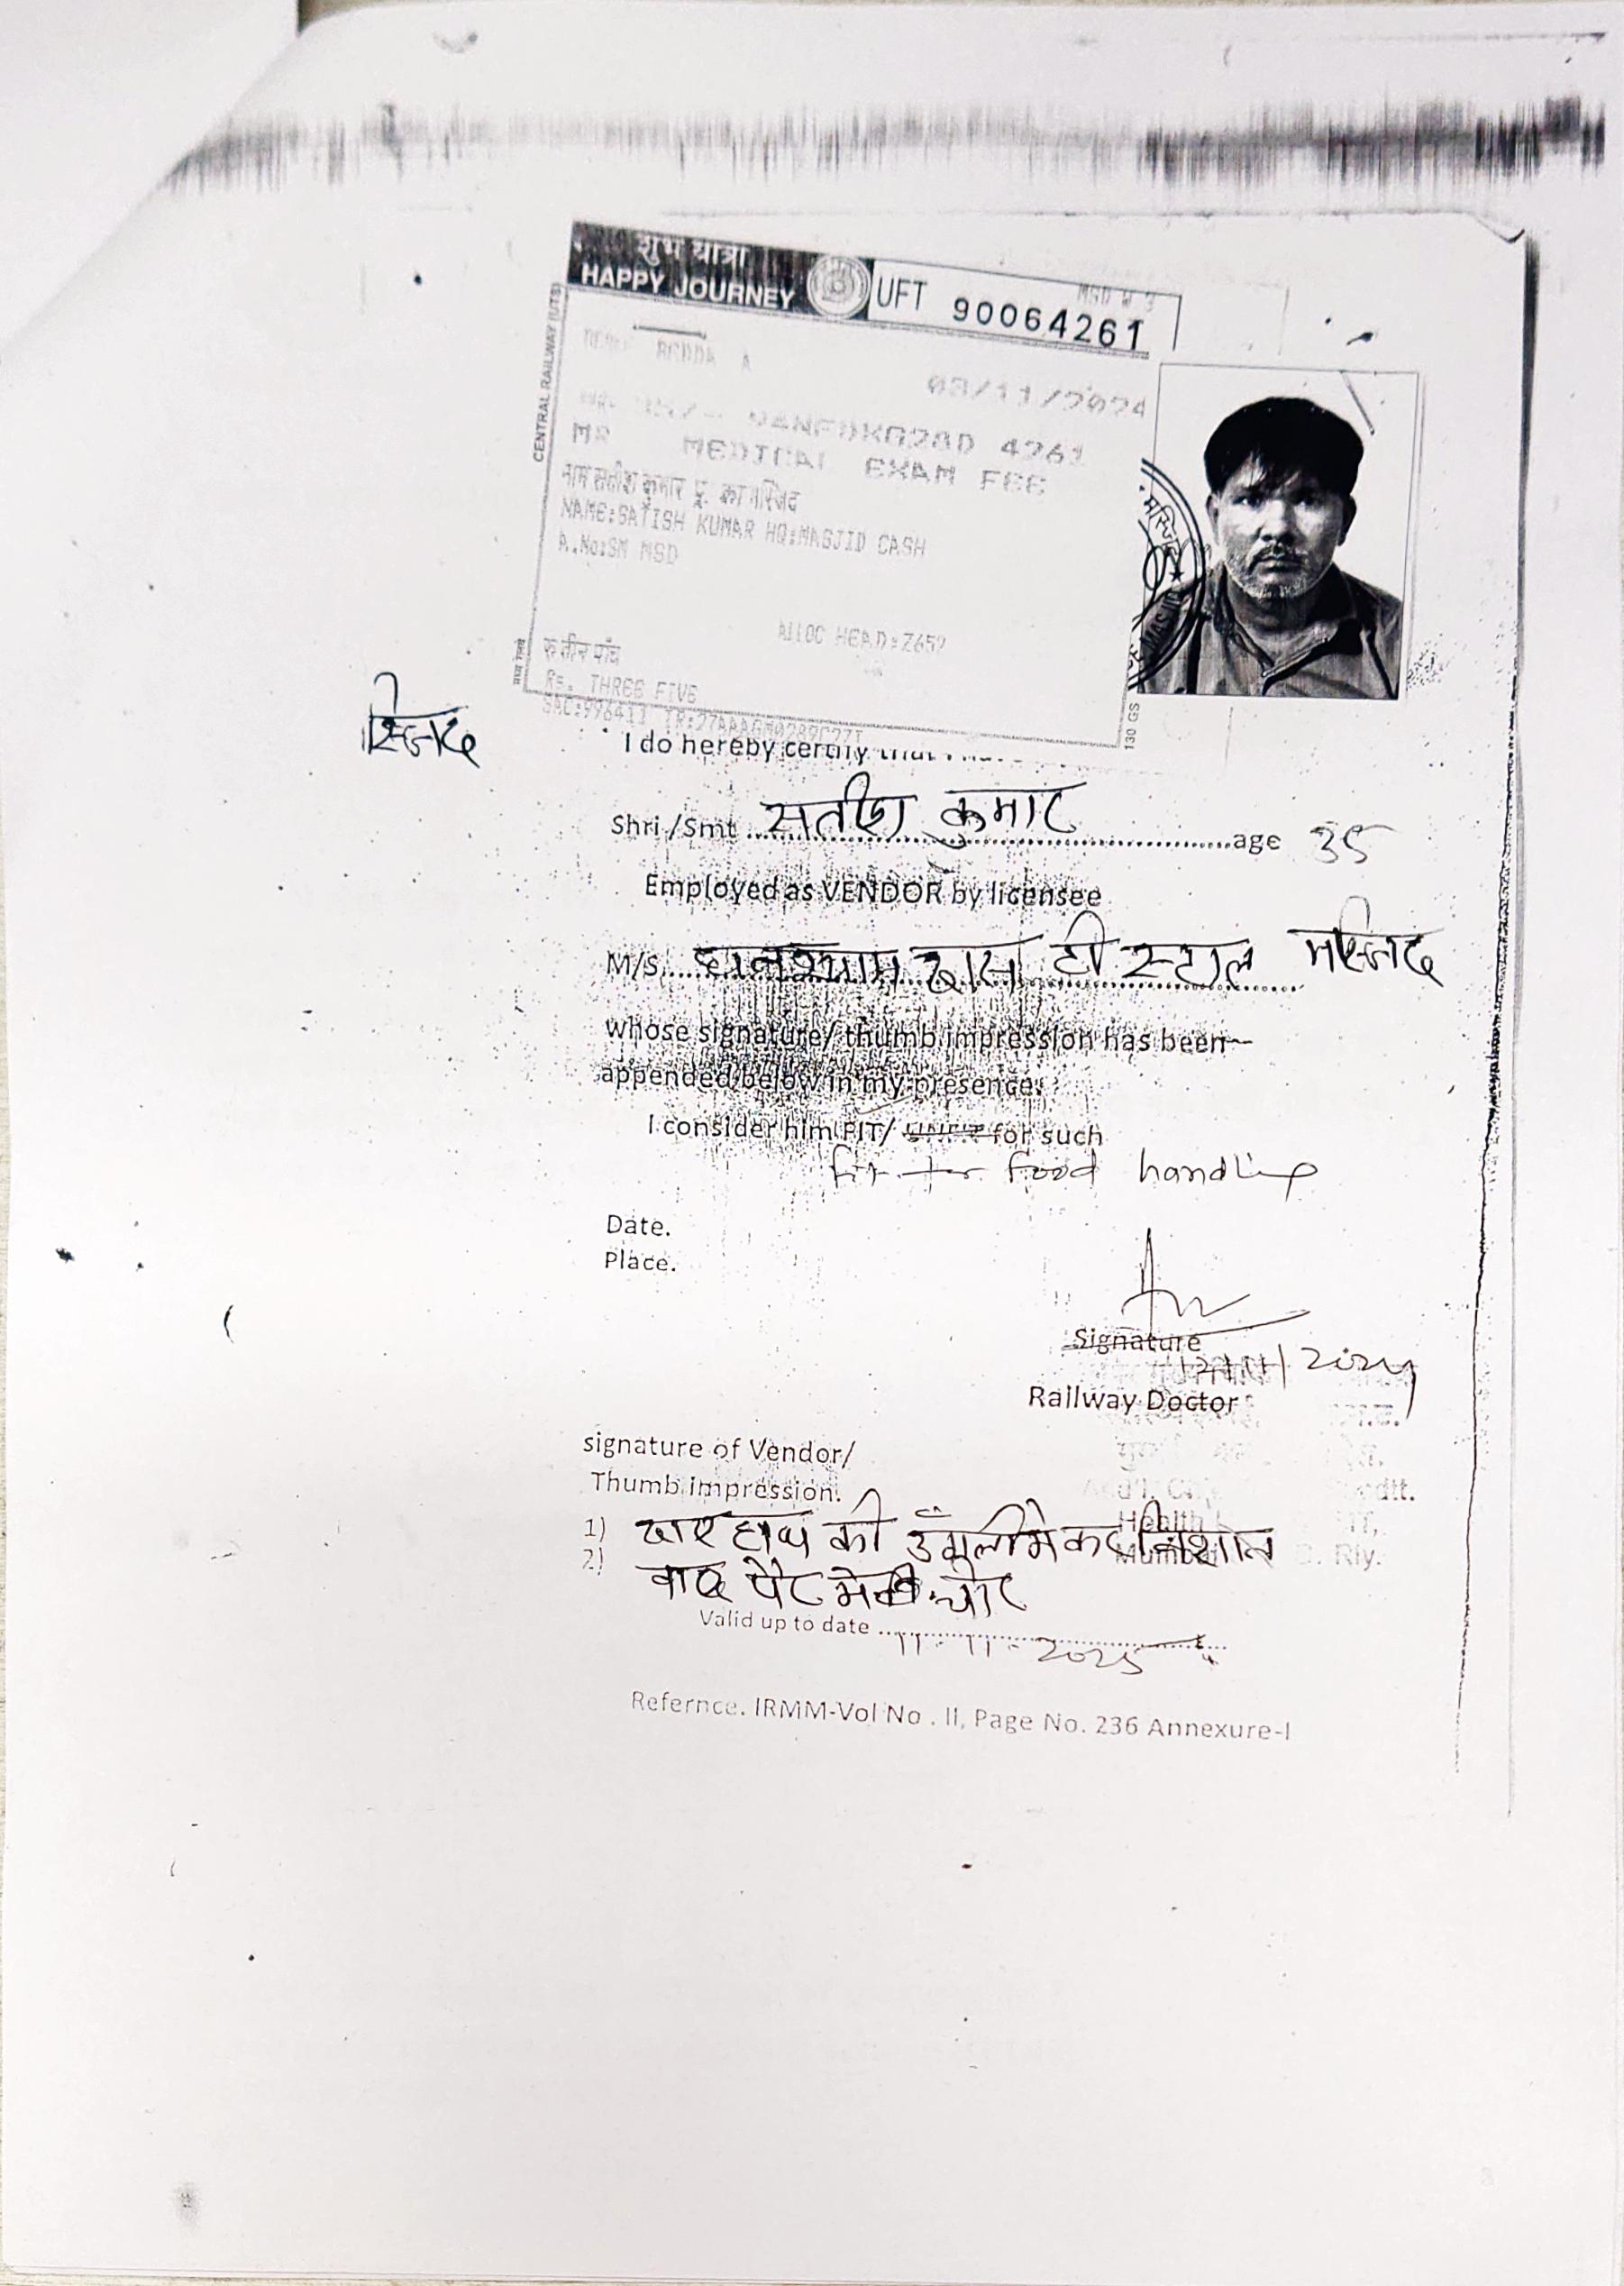 शुभ यात्रा
HAPPY JOURNEY
UFT 90064261
CENTRAL RAILWAY (UTS)
03/11/2024
4261
MEDICAL EXAM FEE
NAME:SATISH KUMAR HQ:MASJID CASH
A.No:SM MSD
Alloc HEAD:Z652
रु तीन पांच
Rs. THREE FIVE
130 GS
I do hereby certify that
Shri /Smt सतीश कुमार age 35
Employed as VENDOR by licensee
M/s. घनश्याम दास टी स्टाल मस्जिद
whose signature/ thumb impression has been
appended below in my presence.
I consider him FIT/ for such
fit for food handling
Date.
Place.
Signature
2024
Railway Doctor
signature of Vendor/
Thumb impression.
1) हाथ की उँगली मे कट निशान
2) पैर मे चोट
Valid up to date 11-11-2025
Refernce. IRMM-Vol No . II, Page No. 236 Annexure-I